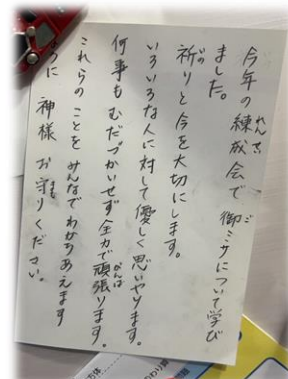 今年の練成会で御ミサについて学び
ました。
祈りと今を大切にします。
いろいろな人に対して優しく思いやります。
何事もむだづかいせず全力で頑張ります。
これらのことをみんなでわかちあえます
ように 神様 お守りください。